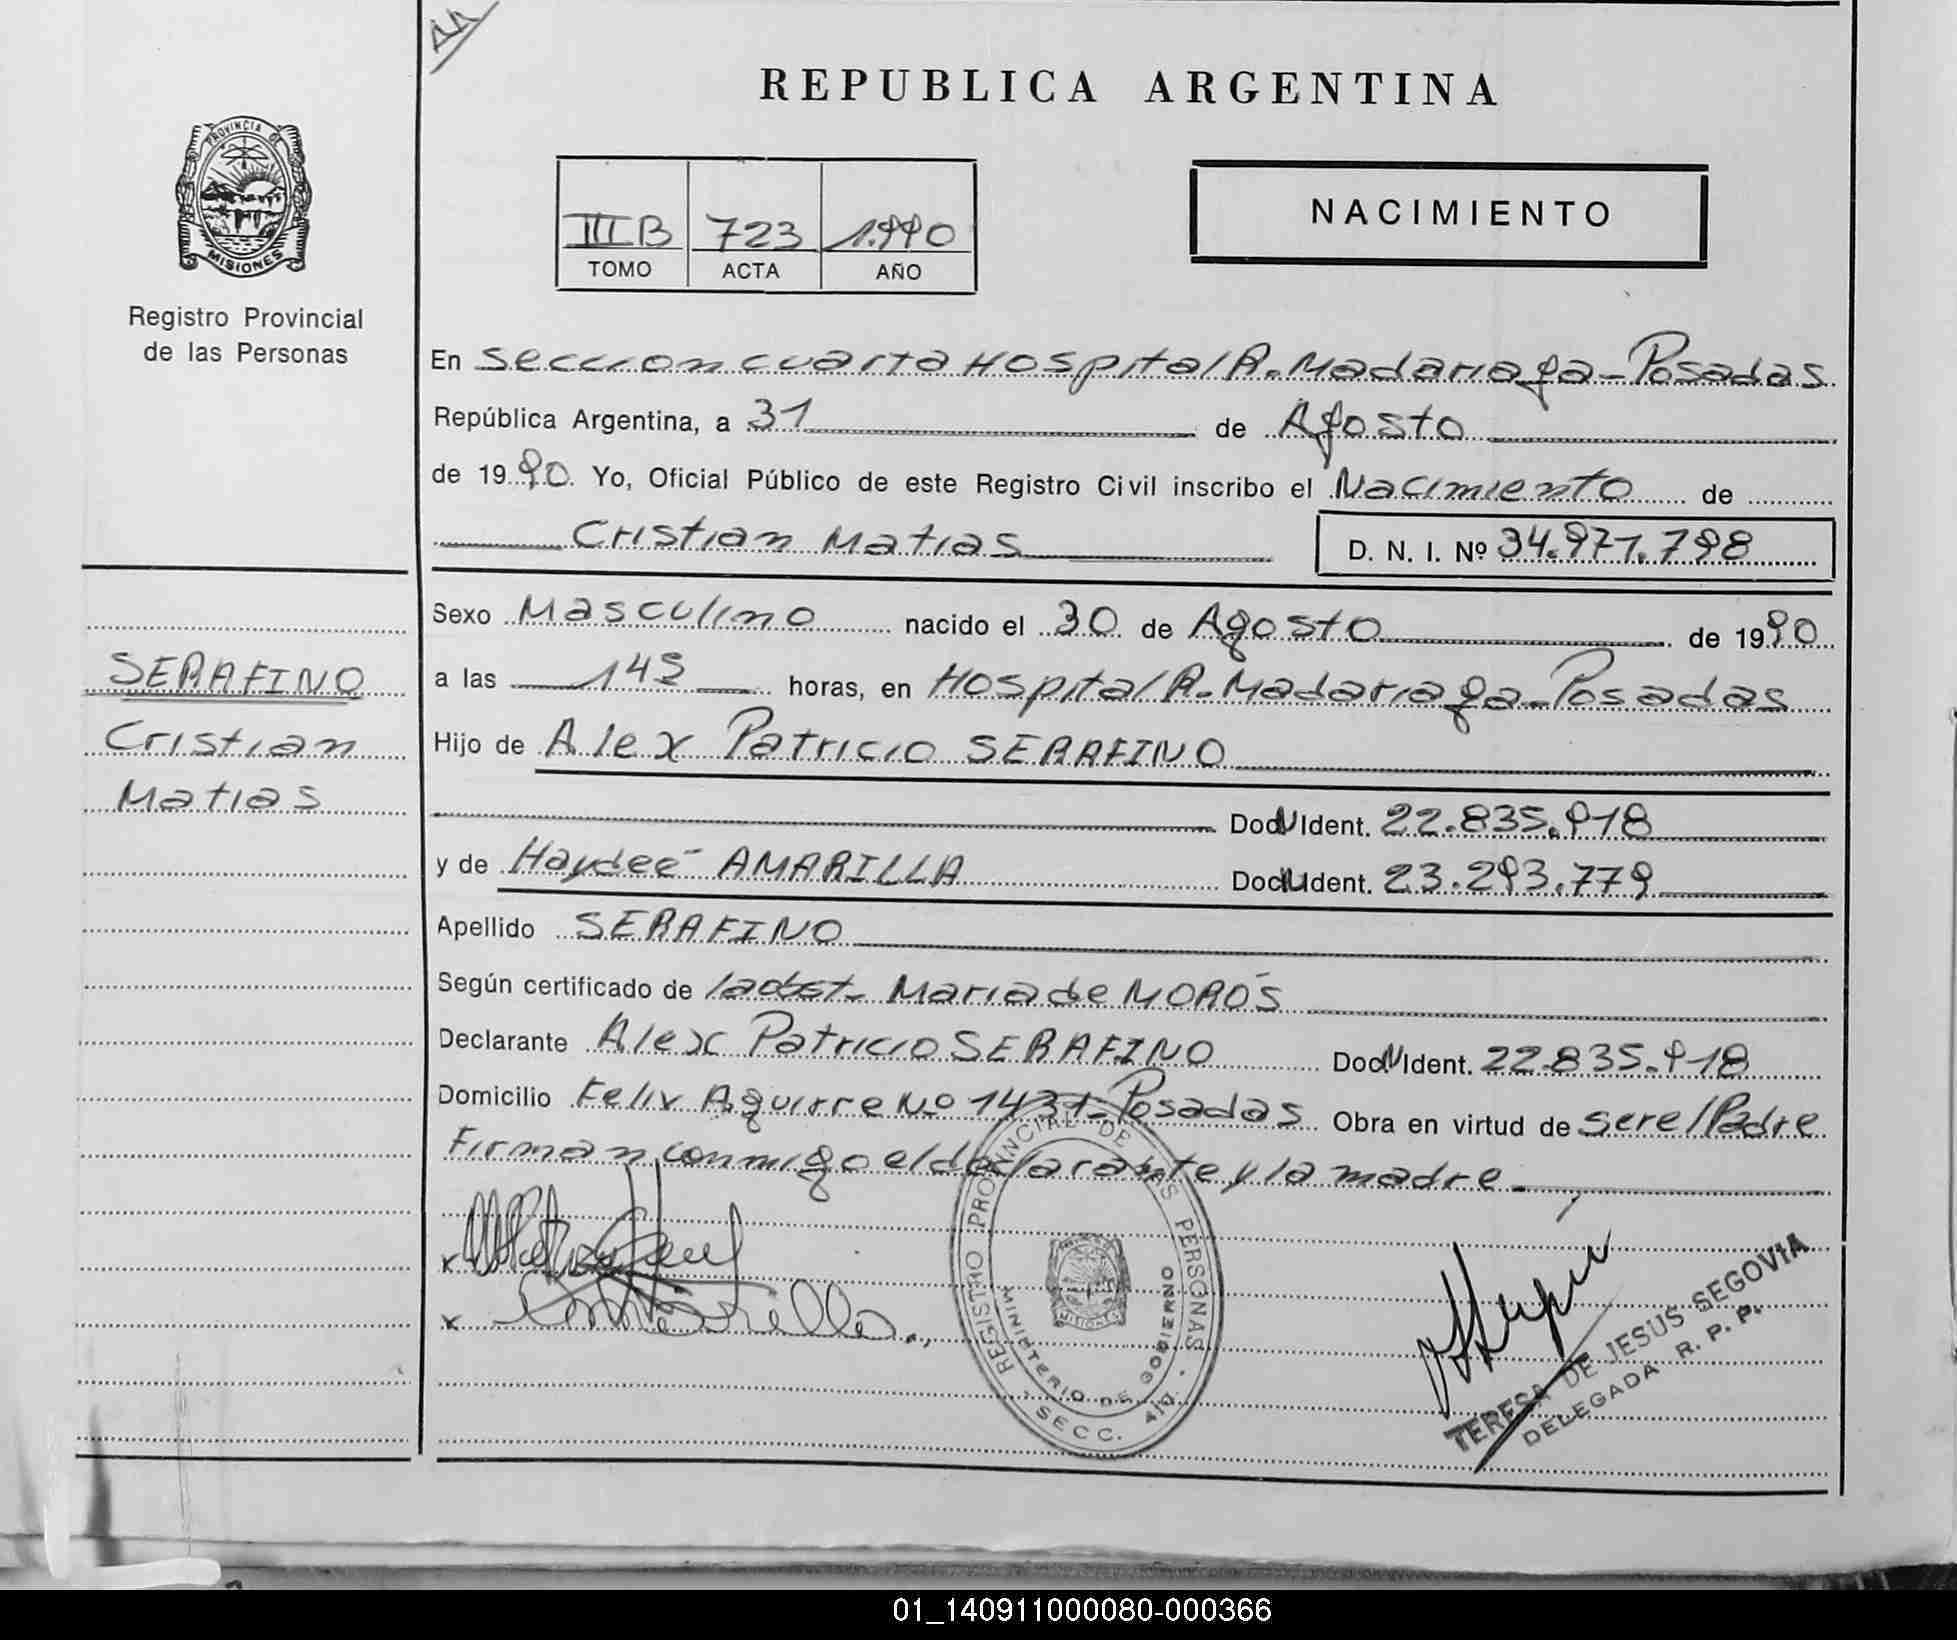 REPUBLICA ARGENTINA
PROVINCIA DE
MISIONES
Registro Provincial
de las Personas
III B 723 1.990
TOMO ACTA AÑO
NACIMIENTO
En seccion cuarta Hospital R. Madariaga - Posadas
República Argentina, a 31 de Agosto
de 1990. Yo, Oficial Público de este Registro Civil inscribo el Nacimiento de
Cristian Matias D. N. I. Nº 34.971.798
Sexo Masculino nacido el 30 de Agosto de 1990
a las 145 horas, en Hospital R. Madariaga - Posadas
Hijo de Alex Patricio SERAFINO
Doc N Ident. 22.835.918
y de Haydeé AMARILLA Doc N Ident. 23.293.779
Apellido SERAFINO
Según certificado de la obst. Maria de MORÓS
Declarante Alex Patricio SERAFINO Doc N Ident. 22.835.918
Domicilio Felix Aguirre Nº 1431 - Posadas Obra en virtud de ser el Padre
Firman conmigo el declarante y la madre
SERAFINO
Cristian
Matias
x
x
REGISTRO PROVINCIAL DE LAS PERSONAS
MINISTERIO DE GOBIERNO
MISIONES
SECC. 4ta.
TERESA DE JESUS SEGOVIA
DELEGADA R. P. P.
01_140911000080-000366